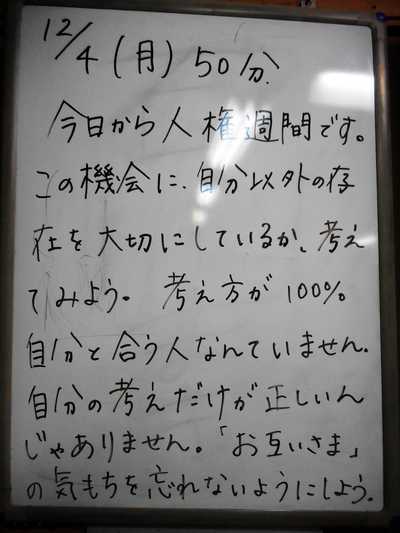 12/4(月)50分.
今日から人権週間です。
この機会に、自分以外の存
在を大切にしているか、考え
てみよう。 考え方が100%
自分と合う人なんていません.
自分の考えだけが正しいん
じゃありません。「お互いさま」
の気もちを忘れないようにしよう.